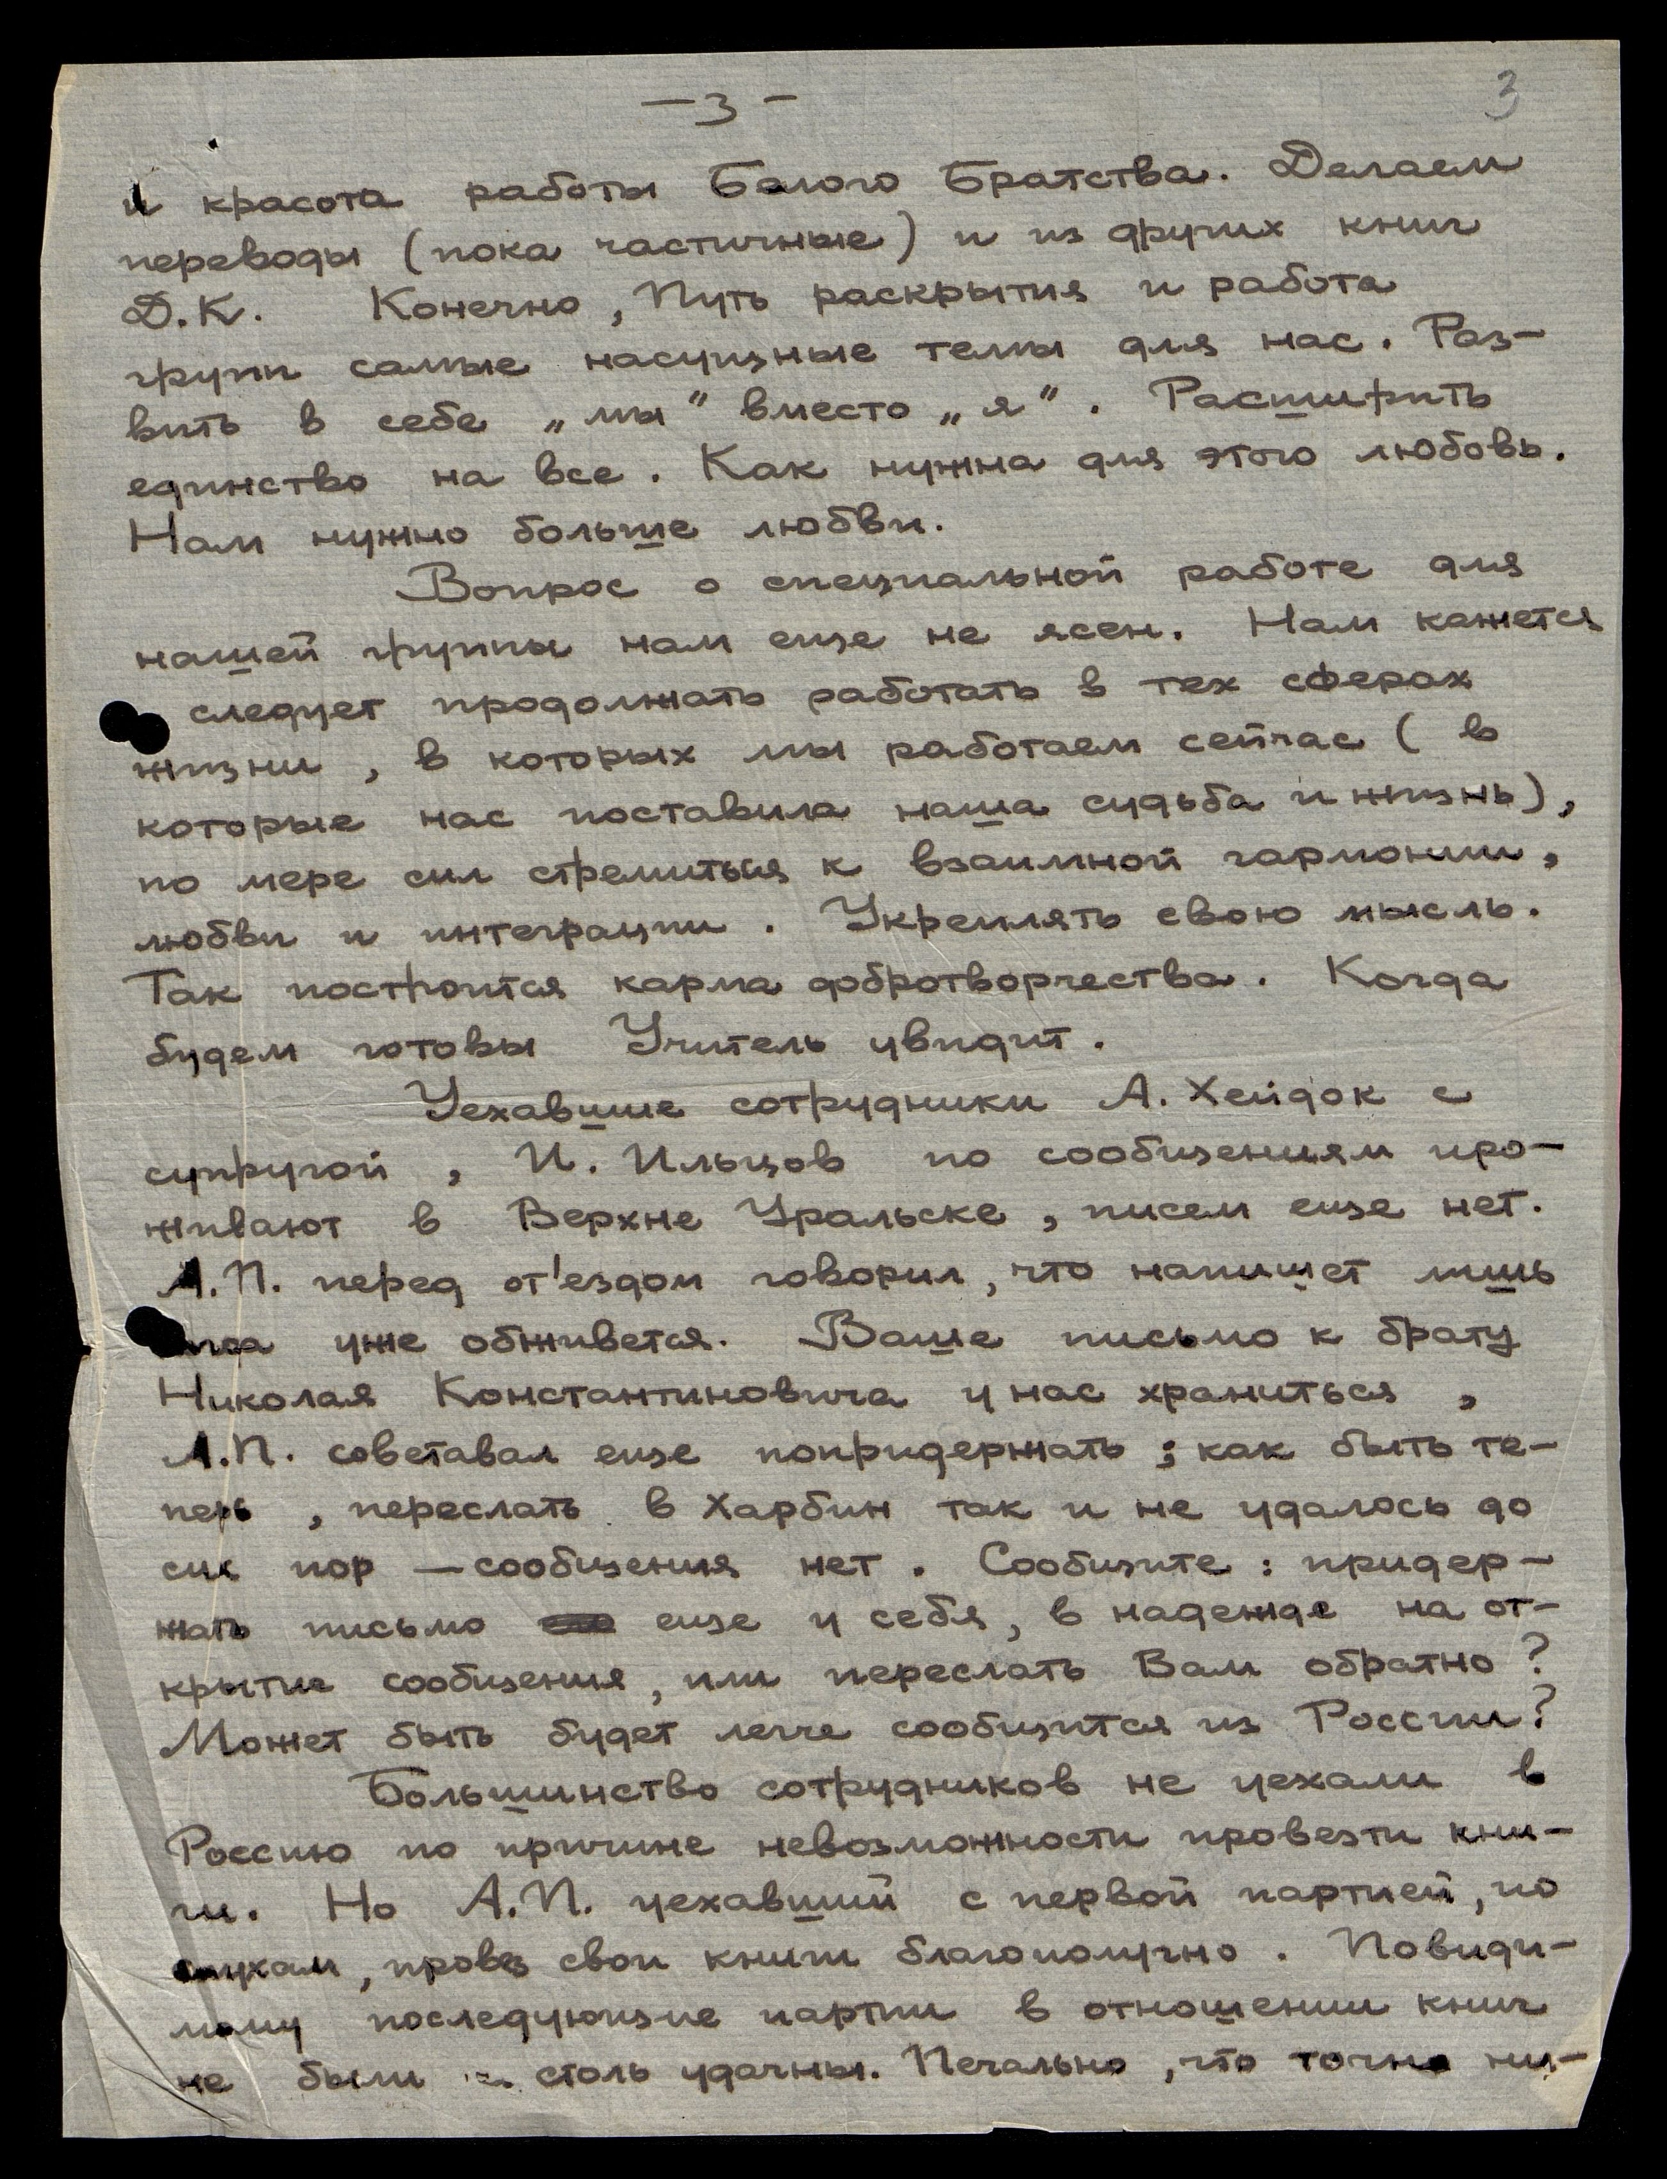 — 3 —
3
и красота работы Белого Братства. Делаем
переводы (пока частичные) и из других книг
Д.К. Конечно, Путь раскрытия и работа
групп самые насущные темы для нас. Раз-
вить в себе „мы" вместо „я". Расширить
единство на все. Как нужна для этого любовь.
Нам нужно больше любви.
Вопрос о специальной работе для
нашей группы нам еще не ясен. Нам кажется
следует продолжать работать в тех сферах
жизни, в которых мы работаем сейчас (в
которые нас поставила наша судьба и жизнь),
по мере сил стремиться к взаимной гармонии,
любви и интеграции. Укреплять свою мысль.
Так построится карма добротворчества. Когда
будем готовы Учитель увидит.
Уехавшие сотрудники А. Хейдок с
супругой, И. Ильцов по сообщениям про-
живают в Верхне Уральске, писем еще нет.
А.П. перед от'ездом говорил, что напишет лишь
уже обживется. Ваше письмо к брату
Николая Константиновича у нас храниться,
А.П. советавал еще попридержать; как быть те-
перь, переслать в Харбин так и не удалось до
сих пор — сообщения нет. Сообщите: придер-
жать письмо еще у себя, в надежде на от-
крытие сообщения, или переслать Вам обратно?
Может быть будет легче сообщится из России?
Большинство сотрудников не уехали в
Россию по причине невозможности провезти кни-
ги. Но А.П. уехавший с первой партией, по
слухам, провез свои книги благополучно. Повиди-
мому последующие партии в отношении книг
не были столь удачны. Печально, что точно ни-